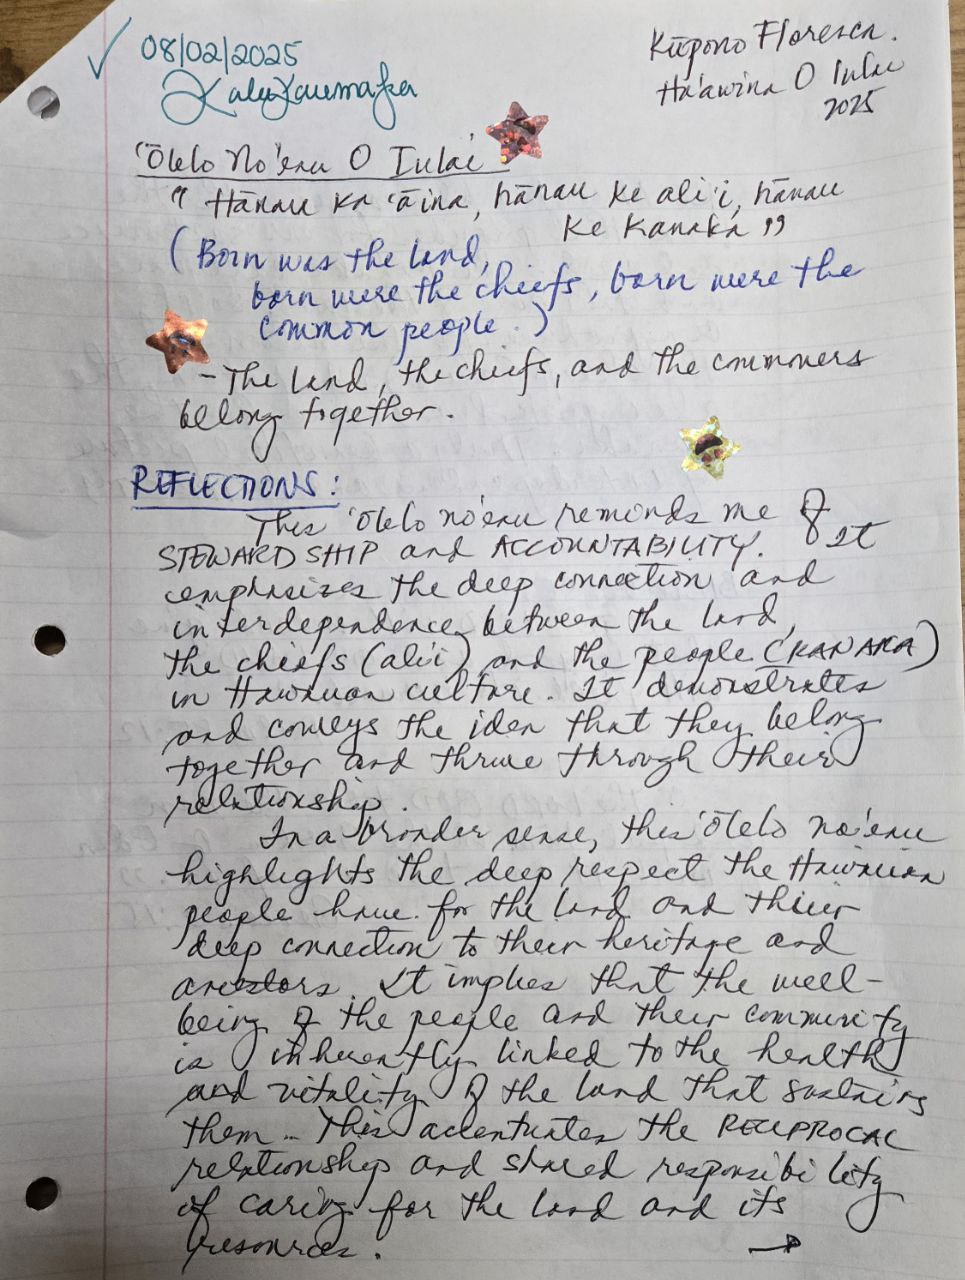 08/02/2025
Kūpono Floresca.
Ha'awina O Iulai
2025
'Ōlelo No'eau O Iulai
" Hānau ka 'āina, hānau ke ali'i, hānau
ke kanaka "
(Born was the land,
born were the chiefs, born were the
common people.)
- The land, the chiefs, and the commoners
belong together.
REFLECTIONS:
This 'ōlelo no'eau reminds me of
STEWARDSHIP and ACCOUNTABILITY. It
emphasizes the deep connection and
interdependence between the land,
the chiefs (ali'i) and the people (KANAKA)
in Hawaiian culture. It demonstrates
and conveys the idea that they belong
together and thrive through their
relationship.
In a broader sense, this 'ōlelo no'eau
highlights the deep respect the Hawaiian
people have for the land and their
deep connection to their heritage and
ancestors. It implies that the well-
being of the people and their community
is inherently linked to the health
and vitality of the land that sustains
them. This accentuates the RECIPROCAL
relationship and shared responsibility
of caring for the land and its
resources. →